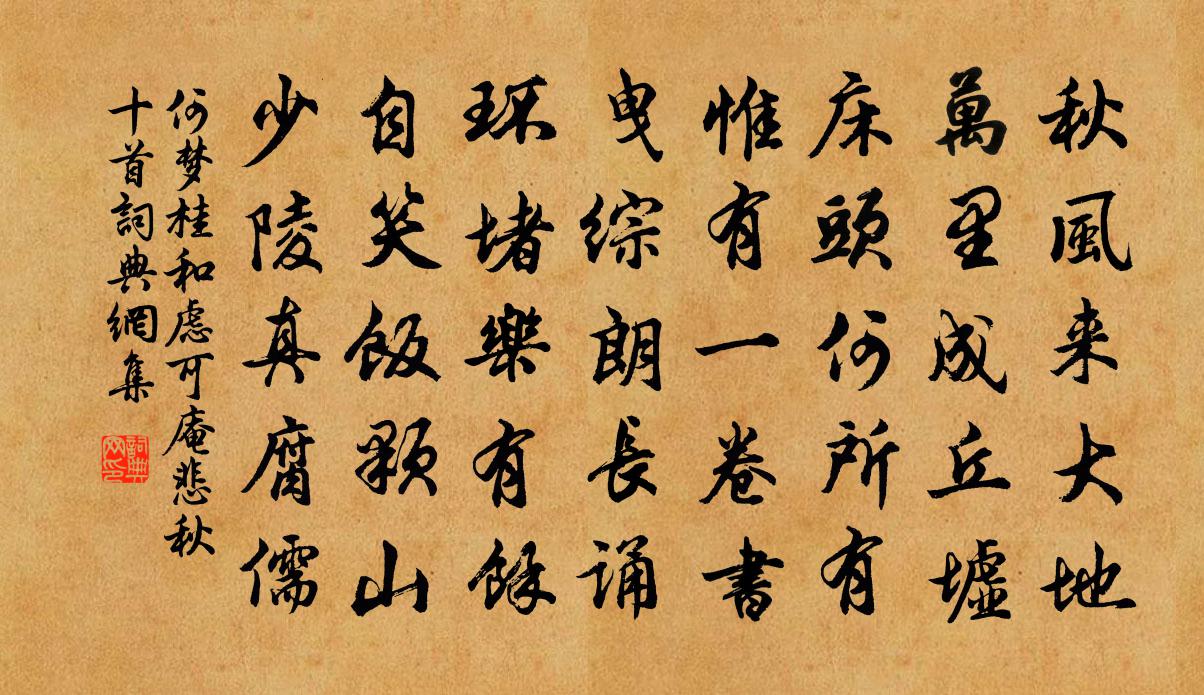 秋風来大地
萬里成丘墟
床頭何所有
惟有一卷書
曵綜朗長诵
环堵樂有餘
自笑飯顆山
少陵真腐儒
何梦桂和慮可庵悲秋
十首詞典網集
詞典网印